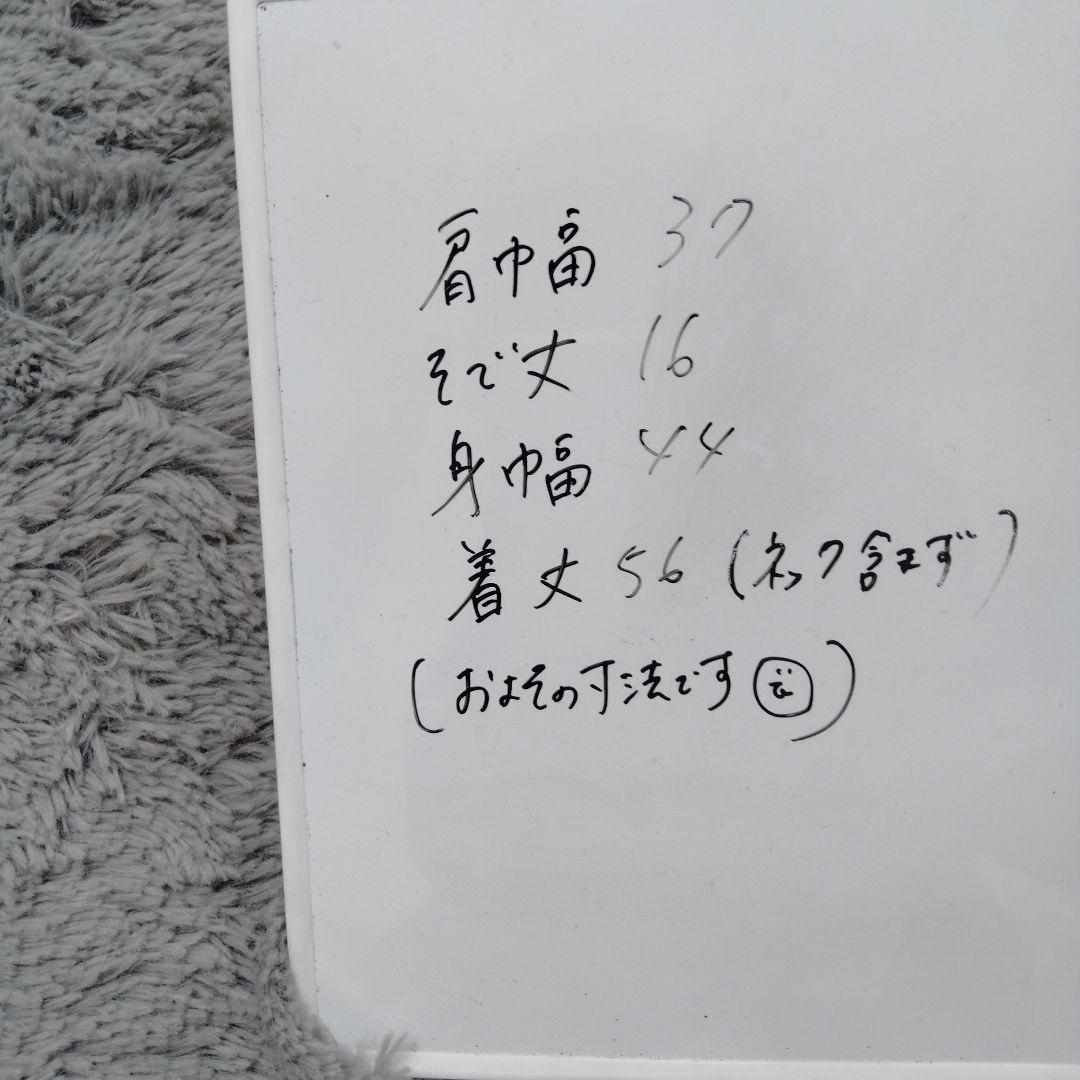 肩巾幅 37
そで丈 16
身巾幅 44
着丈 56 (ネック含まず)
(おおよその寸法です)